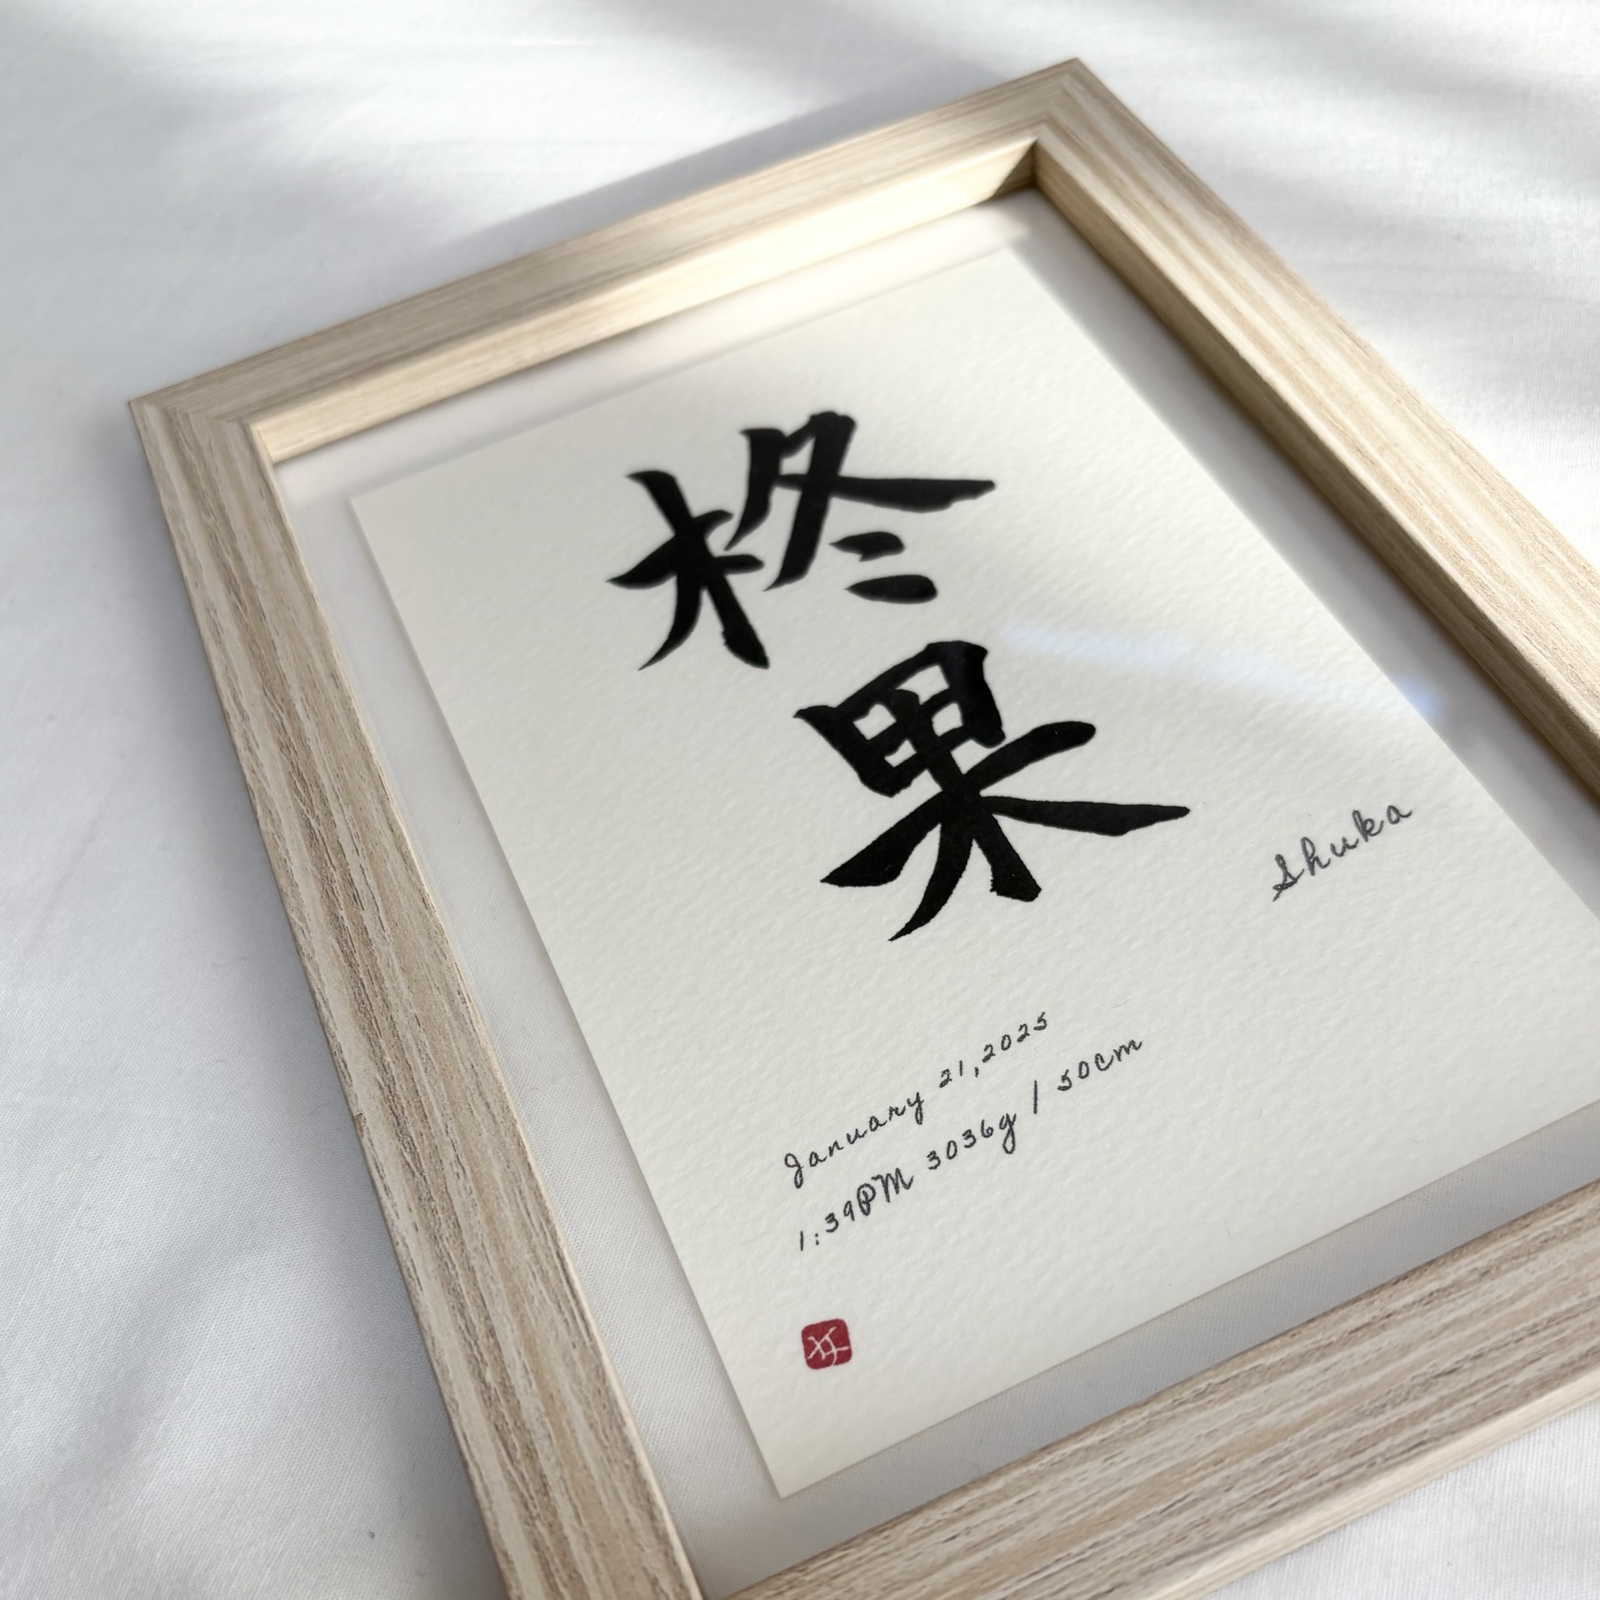 柊
果
Shuka
January 21,2025
1:39PM 3036g / 50cm